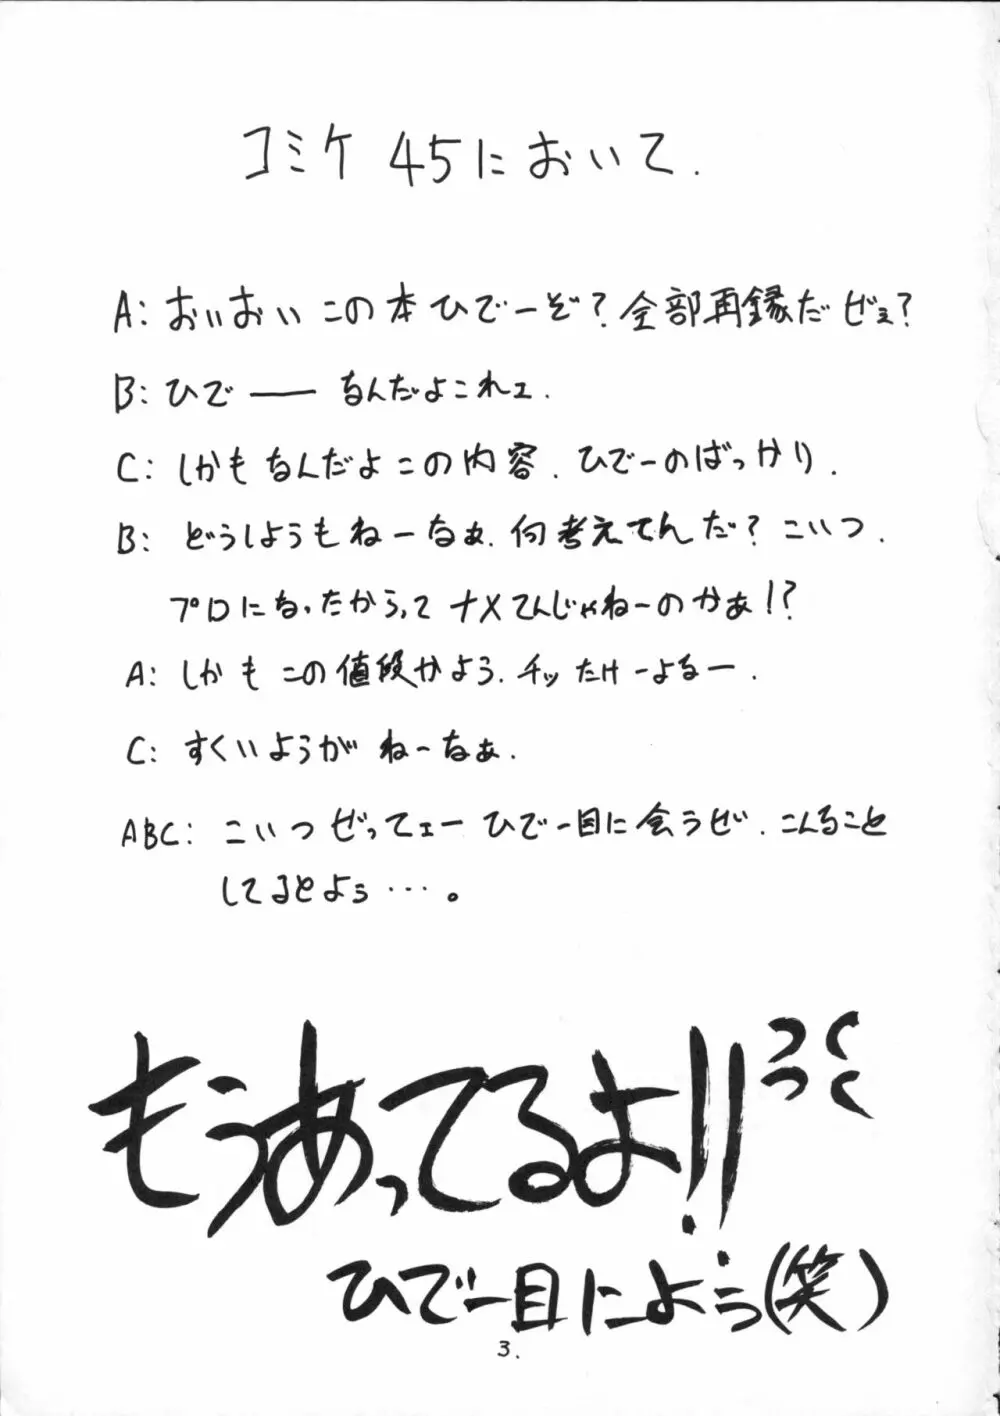 コミケ 45において.
A: おいおい この本ひでーぞ?全部再録だぜぇ?
B: ひで―― なんだよこれェ.
C: しかもなんだよこの内容. ひでーのばっかり.
B: どうしようもねーなぁ. 何考えてんだ? こいつ.
プロになったからって ナメてんじゃねーのかぁ!?
A: しかも この値段かよう. チッ たけーよなー.
C: すくいようが ねーなぁ.
ABC: こいつ ぜってェー ひで一目に会うぜ. こんなこと
してるとよぅ・・・。
もうあってるよ!!
っくっく
ひで一目によう(笑)
3.